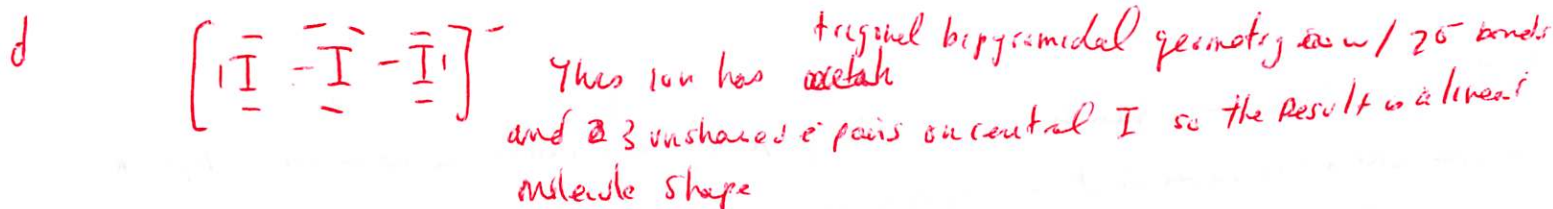 d [I - I - I]⁻
trigonal bipyramidal geometry w/ 2σ bonds
This ion has
and 3 unshared e⁻ pairs on central I so the Result is a linear
molecule shape